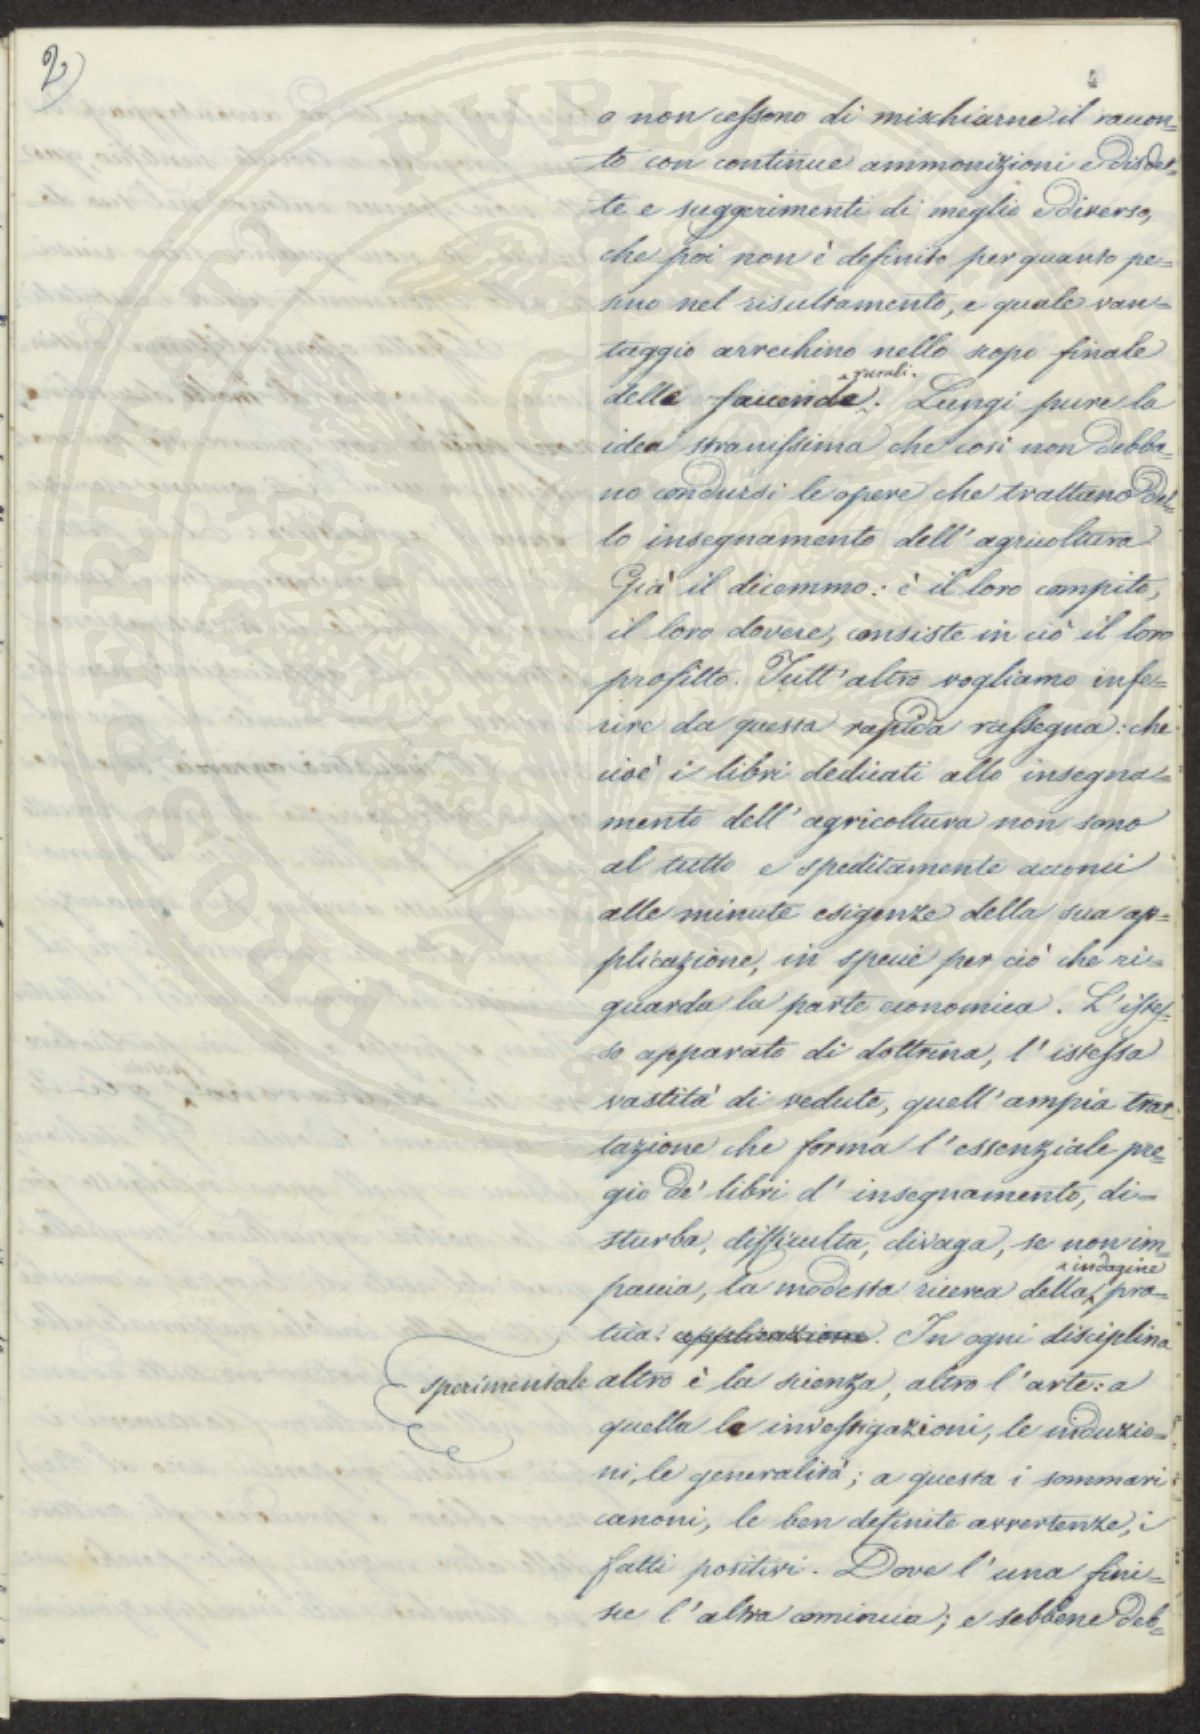 2)
4
o non cessono di mischiarne il raccon=
to con continue ammonizioni e disdet=
te e suggerimenti di meglio e diverso,
che poi non è definito per quanto pe=
sino nel risultamento, e quale van=
taggio arrechino nello scopo finale
delle faccende rurali. Lungi pure la
idea stranissima che così non debba=
no condursi le opere che trattano del=
lo insegnamento dell'agricoltura
Già il dicemmo: è il loro compito,
il loro dovere, consiste in ciò il loro
profitto. Tutt'altro vogliamo infe=
rire da questa rapida rassegna: che
cioè i libri dedicati allo insegna=
mento dell'agricoltura non sono
al tutto e speditamente acconci
alle minute esigenze della sua ap=
plicazione, in specie per ciò che ri=
guarda la parte economica. L'istes=
so apparato di dottrina, l'istessa
vastità di vedute, quell'ampia trat=
tazione che forma l'essenziale pre=
gio de' libri d'insegnamento, di=
sturba, difficulta, divaga, se non im=
paccia, la modesta ricerca della indagine pra=
tica. applicazione. In ogni disciplina
sperimentale altro è la scienza, altro l'arte: a
quella le investigazioni, le induzio=
ni, le generalità; a questa i sommari
canoni, le ben definite avvertenze, i
fatti positivi. Dove l'una fini=
sce l'altra comincia; e sebbene deb=
PROSPERITATI PUBLICAE AUGENDAE